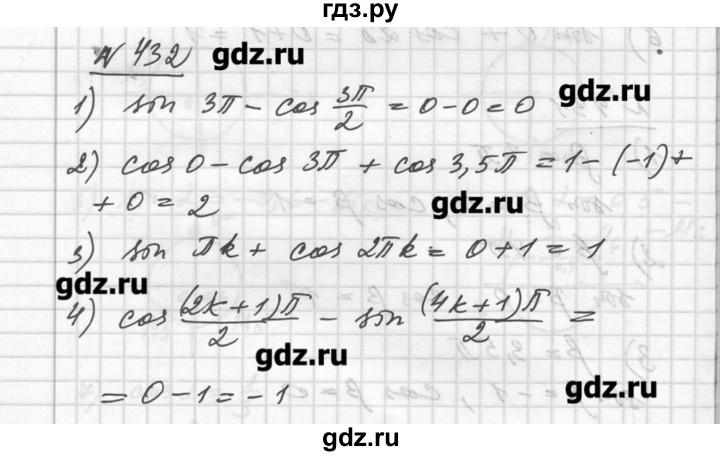 гдз.ру
N 432 gdz.ru
1) sin 3π - cos 3π/2 = 0 - 0 = 0 gdz.ru
2) cos 0 - cos 3π + cos 3,5π = 1 - (-1) +
+ 0 = 2 gdz.ru
3) sin πk + cos 2πk = 0 + 1 = 1
gdz.ru
4) cos (2k+1)π/2 - sin (4k+1)π/2 =
gdz.ru
= 0 - 1 = -1 gdz.ru
gdz.ru